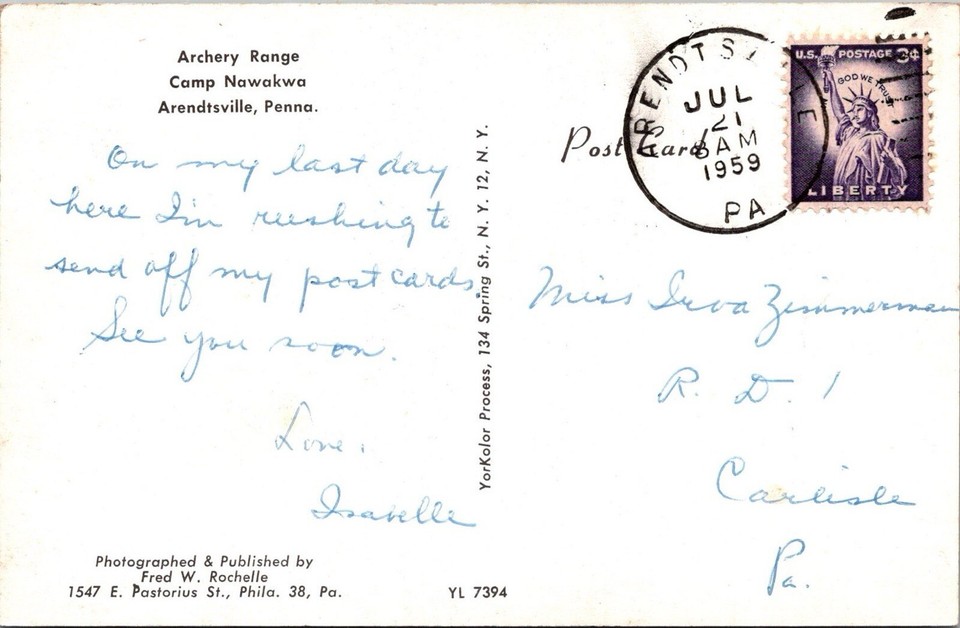 Archery Range
Camp Nawakwa
Arendtsville, Penna.
On my last day
here I'm rushing to
send off my postcards.
See you soon.
Love,
Isabelle
Photographed & Published by
Fred W. Rochelle
1547 E. Pastorius St., Phila. 38, Pa.
YL 7394
YorKolor Process, 134 Spring St., N. Y. 12, N. Y.
Post Card
ARENDTSVILLE
JUL
21
8 AM
1959
PA
U.S. POSTAGE 3¢
IN GOD WE TRUST
LIBERTY
Miss Irva Zimmerman
R. D. 1
Carlisle
Pa.